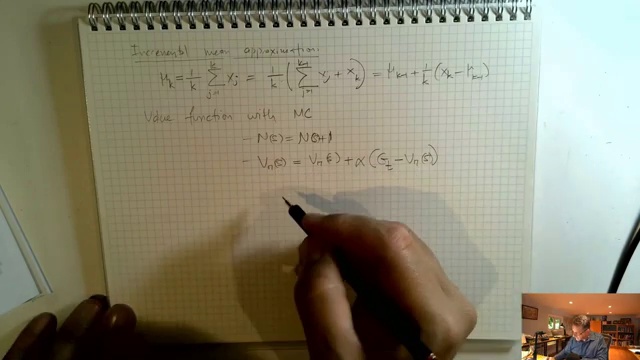 Incremental mean approximation:
μ_k = 1/k ∑_{j=1}^{k} x_j = 1/k ( ∑_{j=1}^{k-1} x_j + x_k ) = μ_{k-1} + 1/k (x_k - μ_{k-1})
Value function with MC
- N(s) = N(s)+1
- V_π(s) = V_π(s) + α (G_t - V_π(s))